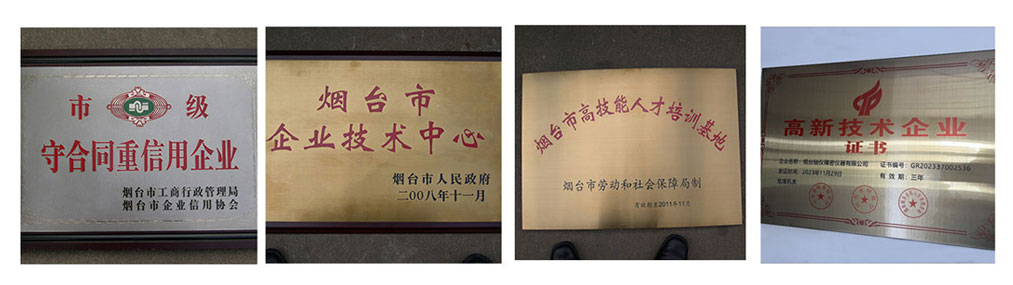 市 级
守合同重信用企业
烟台市工商行政管理局
烟台市企业信用协会
烟台市
企业技术中心
烟台市人民政府
二〇〇八年十一月
烟台市高技能人才培训基地
烟台市劳动和社会保障局制
有效期至2011年11月
高新技术企业
证书
企业名称：烟台铂仪精密仪器有限公司 证书编号：GR202337002536
发证时间：2023年11月29日 有效期：三年
批准机关